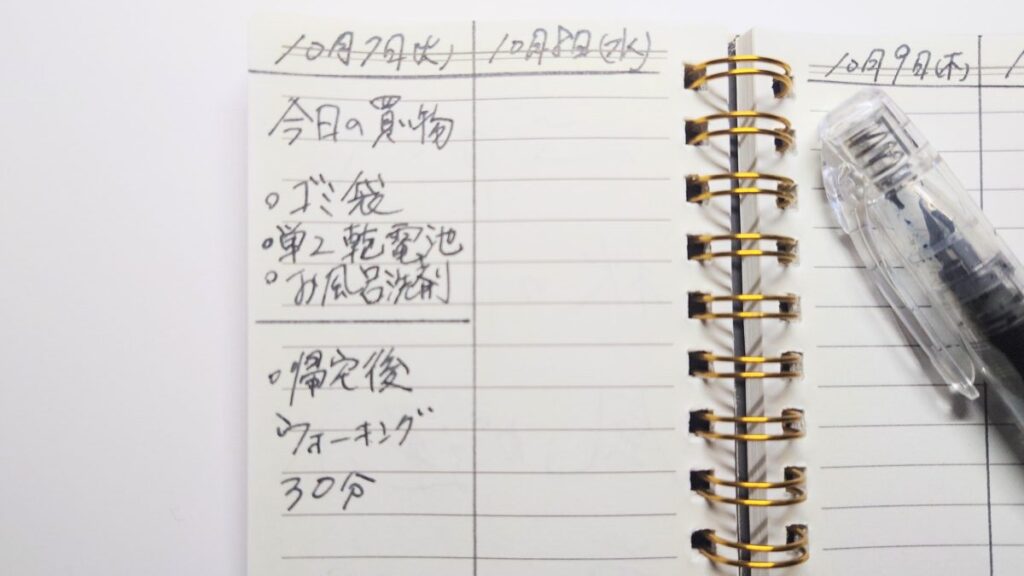 10月7日(火)
10月8日(水)
今日の買い物
○ ゴミ袋
○ 単2乾電池
○ お風呂洗剤
○ 帰宅後
ウォーキング
30分
10月9日(木)